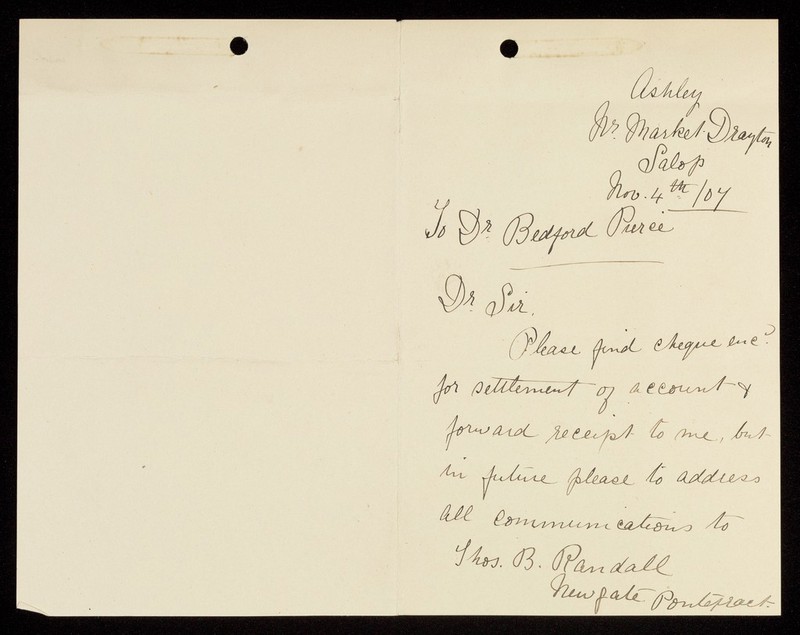 Ashley
Nr. Market Drayton
Salop
Nov. 4th /07
To Dr. Bedford Pierce
Dr. Sir.
Please find cheque encd.
for settlement of account &
forward receipt to me, but
in future please to address
all communications to
Thos. B. Randall
Newgate Pontefract.